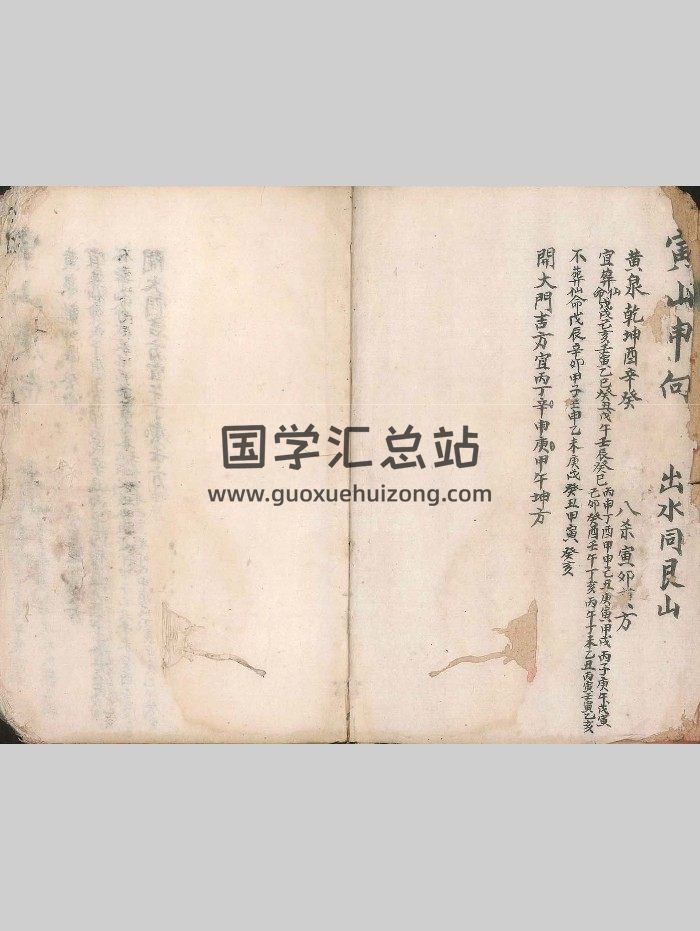 寅山申向 出水同艮山
黄泉乾坤酉辛癸 八杀寅卯 方
宜葬仙命戊戌己亥壬寅乙巳癸丑戊午壬辰癸巳丙申丁酉甲申己丑庚寅甲戌丙子庚午戊寅
己卯癸酉壬午丁亥丙午丁未乙丑丙寅壬寅乙亥
不葬仙命戊辰辛卯甲子壬申乙未庚戌癸丑甲寅癸亥
開大門吉方宜丙丁辛申庚甲午坤方
国学汇总站
www.guoxuehuizong.com